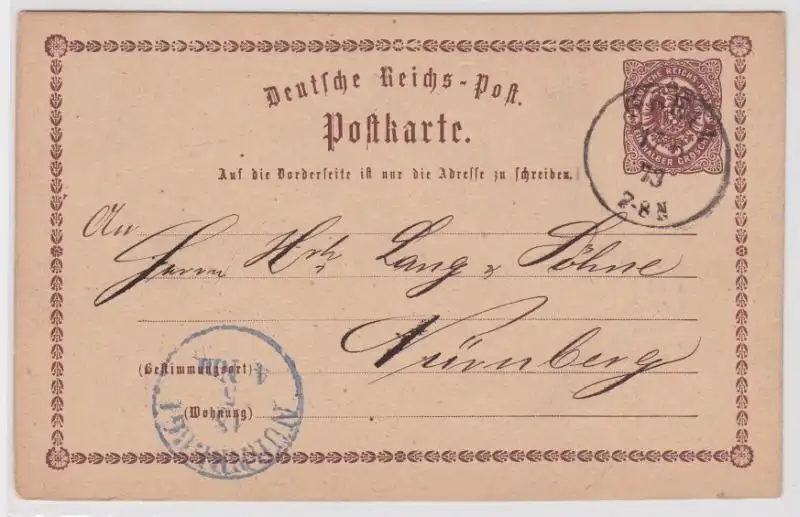 Deutsche Reichs-Post.
Postkarte.
Auf die Vorderseite ist nur die Adresse zu schreiben.
DEUTSCHE REICHS-POST
EIN HALBER GROSCHEN
73
7-8 N
An
Herrn Hrh. Lang & Söhne
Nürnberg
(Bestimmungsort)
(Wohnung)
NÜRNBERG I